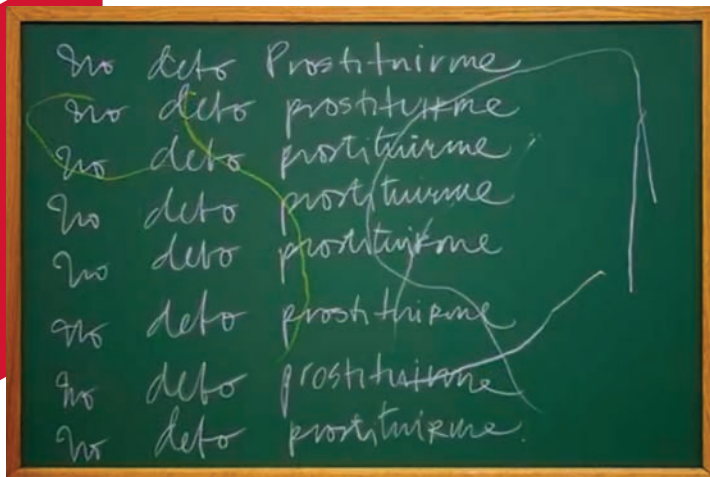 No debo Prostituirme
No debo prostituirme
No debo prostituirme
No debo prostituirme
No debo prostituirme
No debo prostituirme
No debo prostituirme
No debo prostituirme.